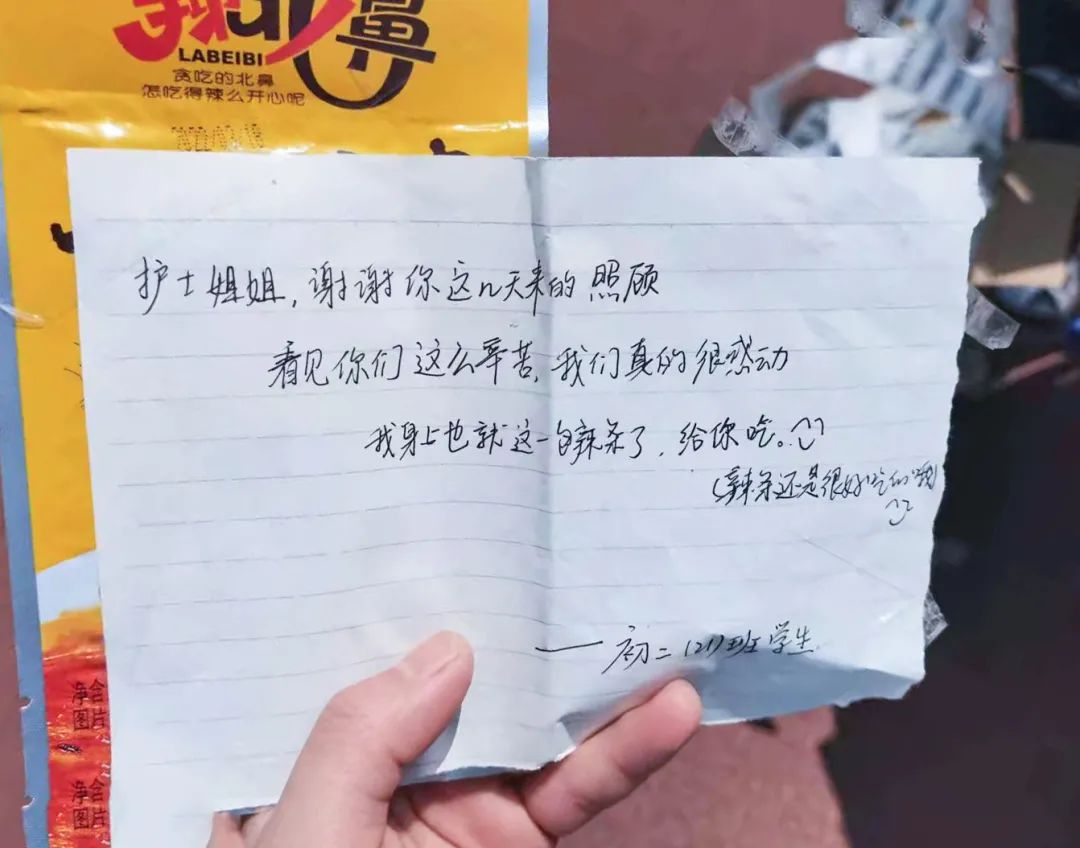 辣北鼻
LABEIBI
贪吃的北鼻
怎吃得辣么开心呢
护士姐姐,谢谢你这几天来的照顾
看见你们这么辛苦,我们真的很感动
我身上也就这一包辣条了,给你吃。
(辣条还是很好吃的哦)
——初二(21)班学生